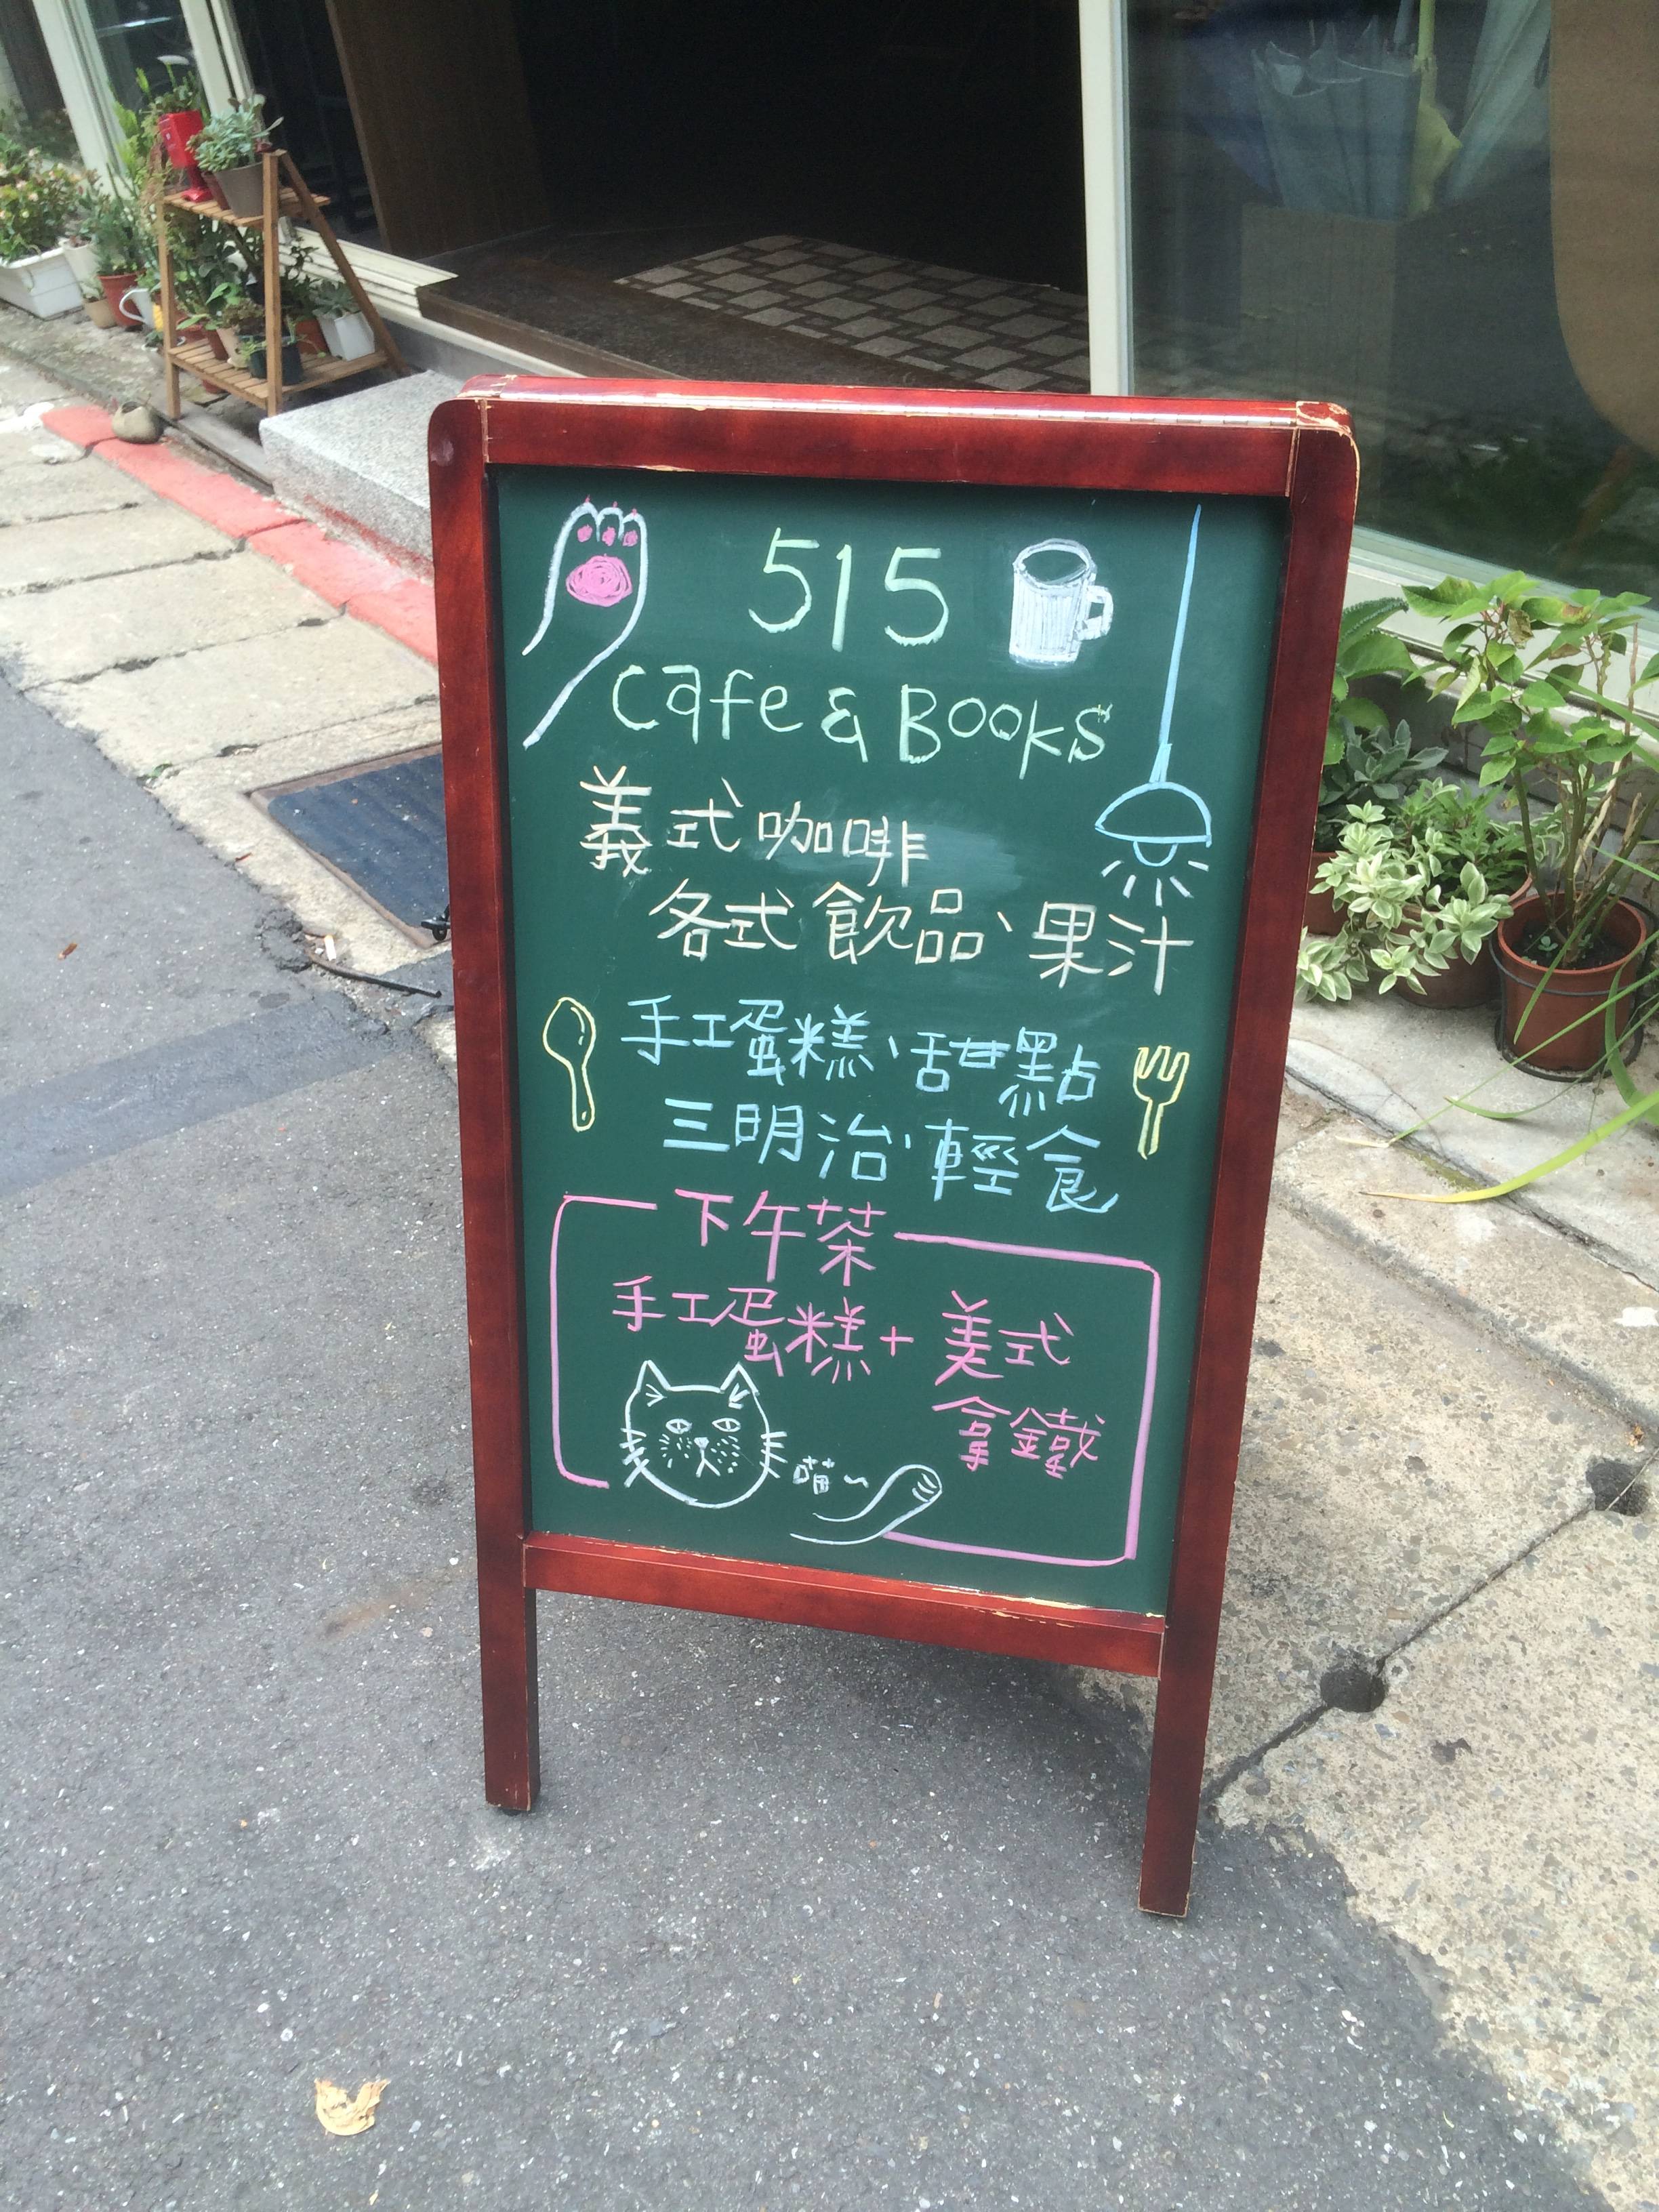 515
Cafe & Books
義式咖啡
各式飲品、果汁
手工蛋糕、甜點
三明治、輕食
下午茶
手工蛋糕+美式
拿鐵
喵~